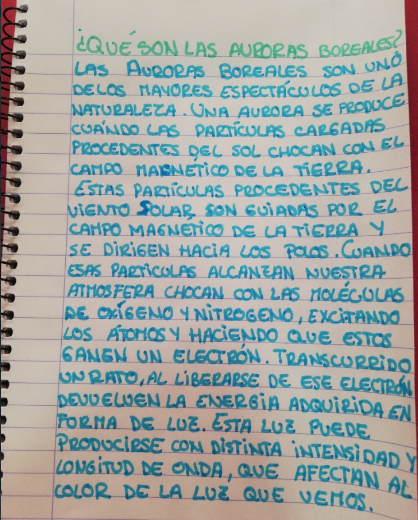 ¿QUÉ SON LAS AURORAS BOREALES?
LAS AURORAS BOREALES SON UNO
DE LOS MAYORES ESPECTÁCULOS DE LA
NATURALEZA. UNA AURORA SE PRODUCE
CUÁNDO LAS PARTÍCULAS CARGADAS
PROCEDENTES DEL SOL CHOCAN CON EL
CAMPO MAGNÉTICO DE LA TIERRA.
ESTAS PARTÍCULAS PROCEDENTES DEL
VIENTO SOLAR SON GUIADAS POR EL
CAMPO MAGNÉTICO DE LA TIERRA Y
SE DIRIGEN HACIA LOS POLOS. CUANDO
ESAS PARTÍCULAS ALCANZAN NUESTRA
ATMÓSFERA CHOCAN CON LAS MOLÉCULAS
DE OXÍGENO Y NITRÓGENO, EXCITANDO
LOS ÁTOMOS Y HACIENDO QUE ESTOS
GANEN UN ELECTRÓN. TRANSCURRIDO
UN RATO, AL LIBERARSE DE ESE ELECTRÓN
DEVUELVEN LA ENERGÍA ADQUIRIDA EN
FORMA DE LUZ. ESTA LUZ PUEDE
PRODUCIRSE CON DISTINTA INTENSIDAD Y
LONGITUD DE ONDA, QUE AFECTAN AL
COLOR DE LA LUZ QUE VEMOS.